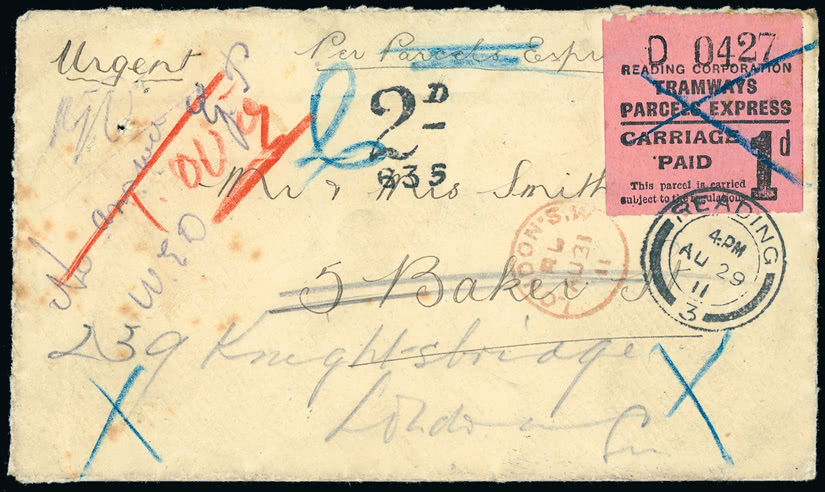 Urgent
Per Parcels Express
D 0427
READING CORPORATION
TRAMWAYS
PARCELS EXPRESS
CARRIAGE
PAID
1d
This parcel is carried
subject to the regulations
2D
635
No answer
W.E.D
Mr & Mrs Smith
5 Baker St
239 Knightsbridge
London
LONDON·S.W
AU 31
11
READING
4.PM
AU 29
11
3